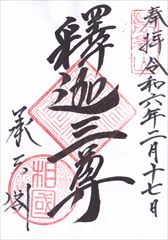 奉拝 令和六年二月十七日
釋迦三尊
承天閣
相國